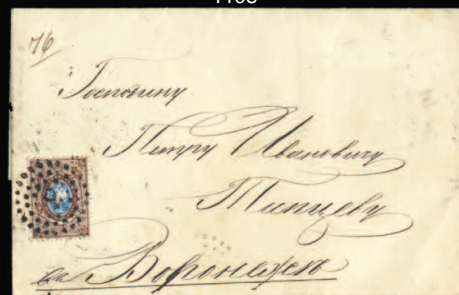 76
Господину
Петру Ивановичу
въ Воронежъ